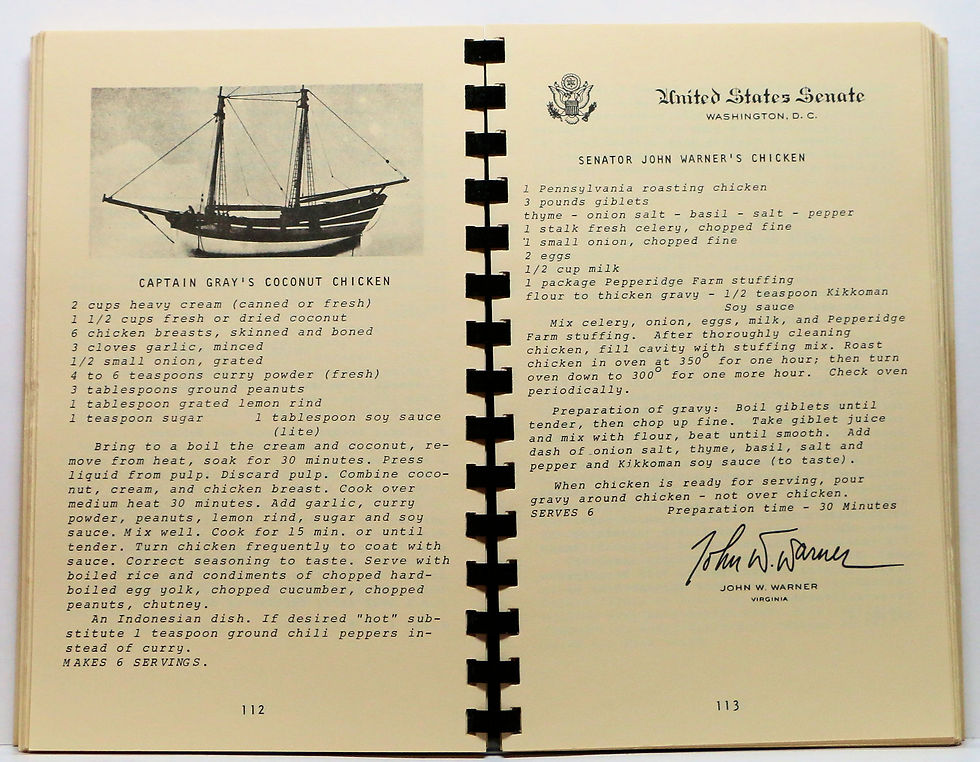 CAPTAIN GRAY'S COCONUT CHICKEN
2 cups heavy cream (canned or fresh)
1 1/2 cups fresh or dried coconut
6 chicken breasts, skinned and boned
3 cloves garlic, minced
1/2 small onion, grated
4 to 6 teaspoons curry powder (fresh)
3 tablespoons ground peanuts
1 tablespoon grated lemon rind
1 teaspoon sugar 1 tablespoon soy sauce
(lite)
Bring to a boil the cream and coconut, re-
move from heat, soak for 30 minutes. Press
liquid from pulp. Discard pulp. Combine coco-
nut, cream, and chicken breast. Cook over
medium heat 30 minutes. Add garlic, curry
powder, peanuts, lemon rind, sugar and soy
sauce. Mix well. Cook for 15 min. or until
tender. Turn chicken frequently to coat with
sauce. Correct seasoning to taste. Serve with
boiled rice and condiments of chopped hard-
boiled egg yolk, chopped cucumber, chopped
peanuts, chutney.
An Indonesian dish. If desired "hot" sub-
stitute 1 teaspoon ground chili peppers in-
stead of curry.
MAKES 6 SERVINGS.
112
United States Senate
WASHINGTON, D. C.
SENATOR JOHN WARNER'S CHICKEN
1 Pennsylvania roasting chicken
3 pounds giblets
thyme - onion salt - basil - salt - pepper
1 stalk fresh celery, chopped fine
1 small onion, chopped fine
2 eggs
1/2 cup milk
1 package Pepperidge Farm stuffing
flour to thicken gravy - 1/2 teaspoon Kikkoman
Soy sauce
Mix celery, onion, eggs, milk, and Pepperidge
Farm stuffing. After thoroughly cleaning
chicken, fill cavity with stuffing mix. Roast
chicken in oven at 350° for one hour; then turn
oven down to 300° for one more hour. Check oven
periodically.
Preparation of gravy: Boil giblets until
tender, then chop up fine. Take giblet juice
and mix with flour, beat until smooth. Add
dash of onion salt, thyme, basil, salt and
pepper and Kikkoman soy sauce (to taste).
When chicken is ready for serving, pour
gravy around chicken - not over chicken.
SERVES 6 Preparation time - 30 Minutes
John W. Warner
JOHN W. WARNER
VIRGINIA
113